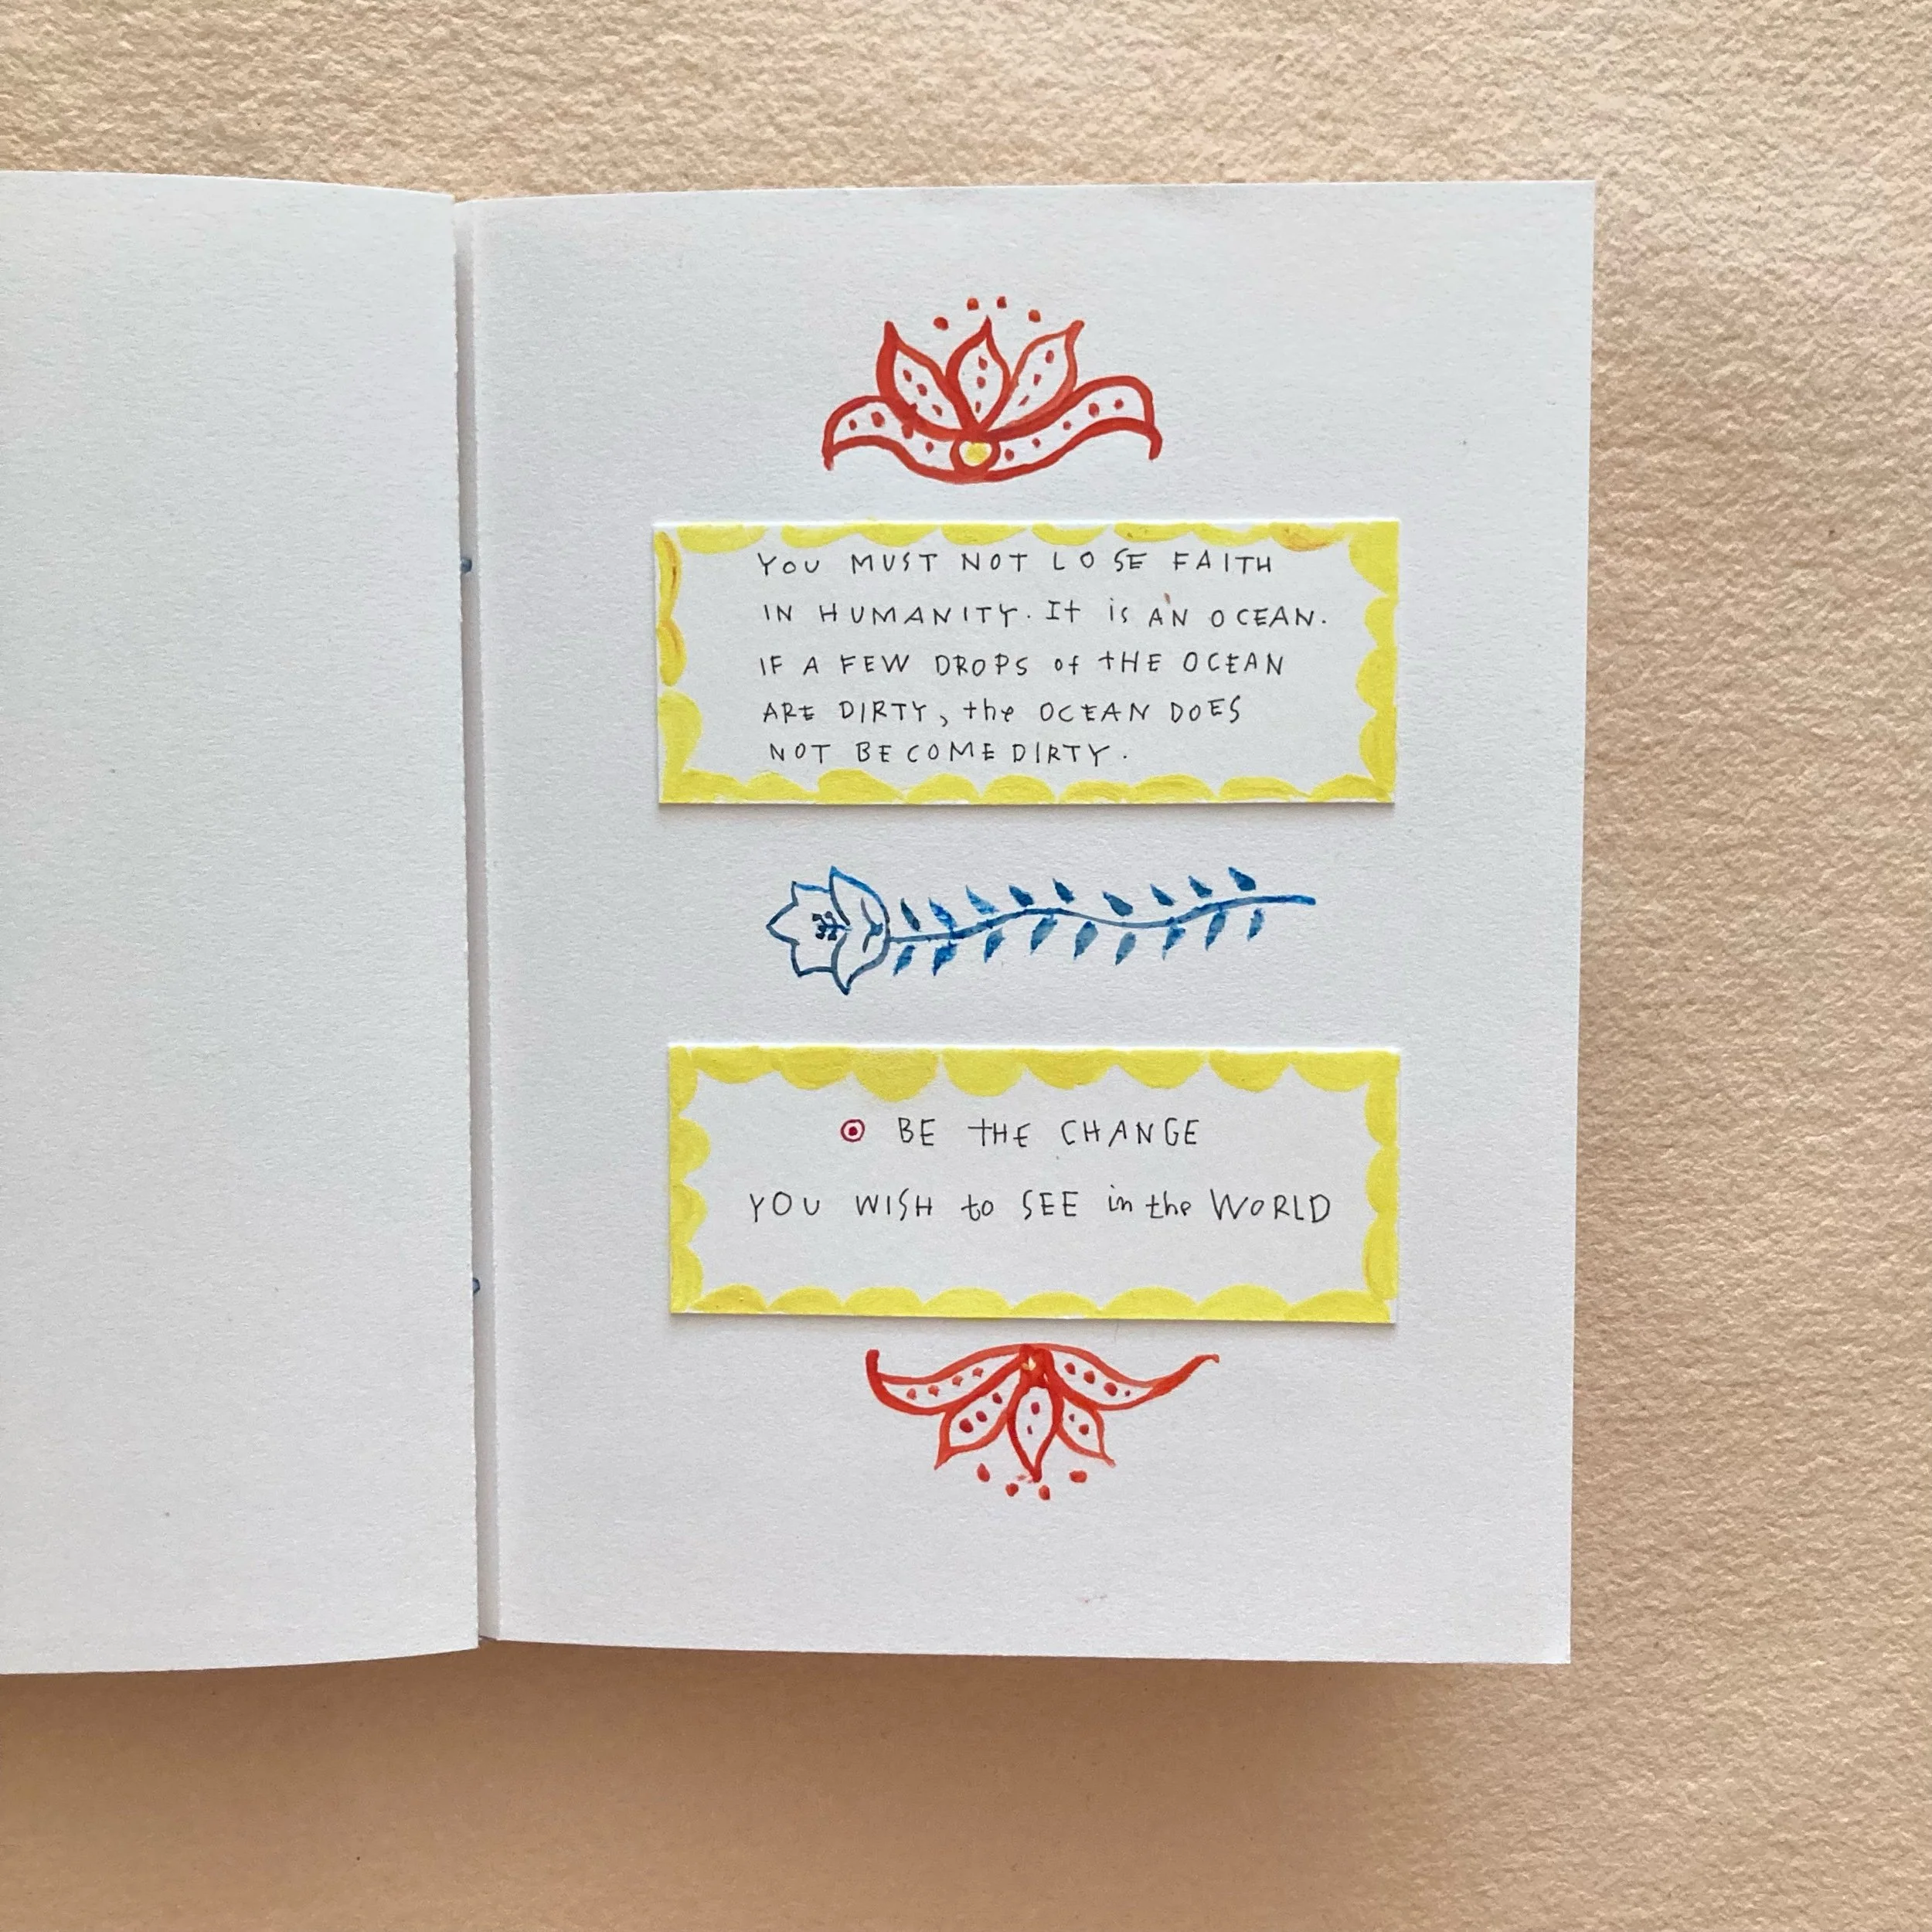 YOU MUST NOT LOSE FAITH
IN HUMANITY. It is AN OCEAN.
IF A FEW DROPS of tHE OCEAN
ARE DIRTY, the OCEAN DOES
NOT BECOME DIRTY.
BE THE CHANGE
YOU WISH to SEE in the WORLD